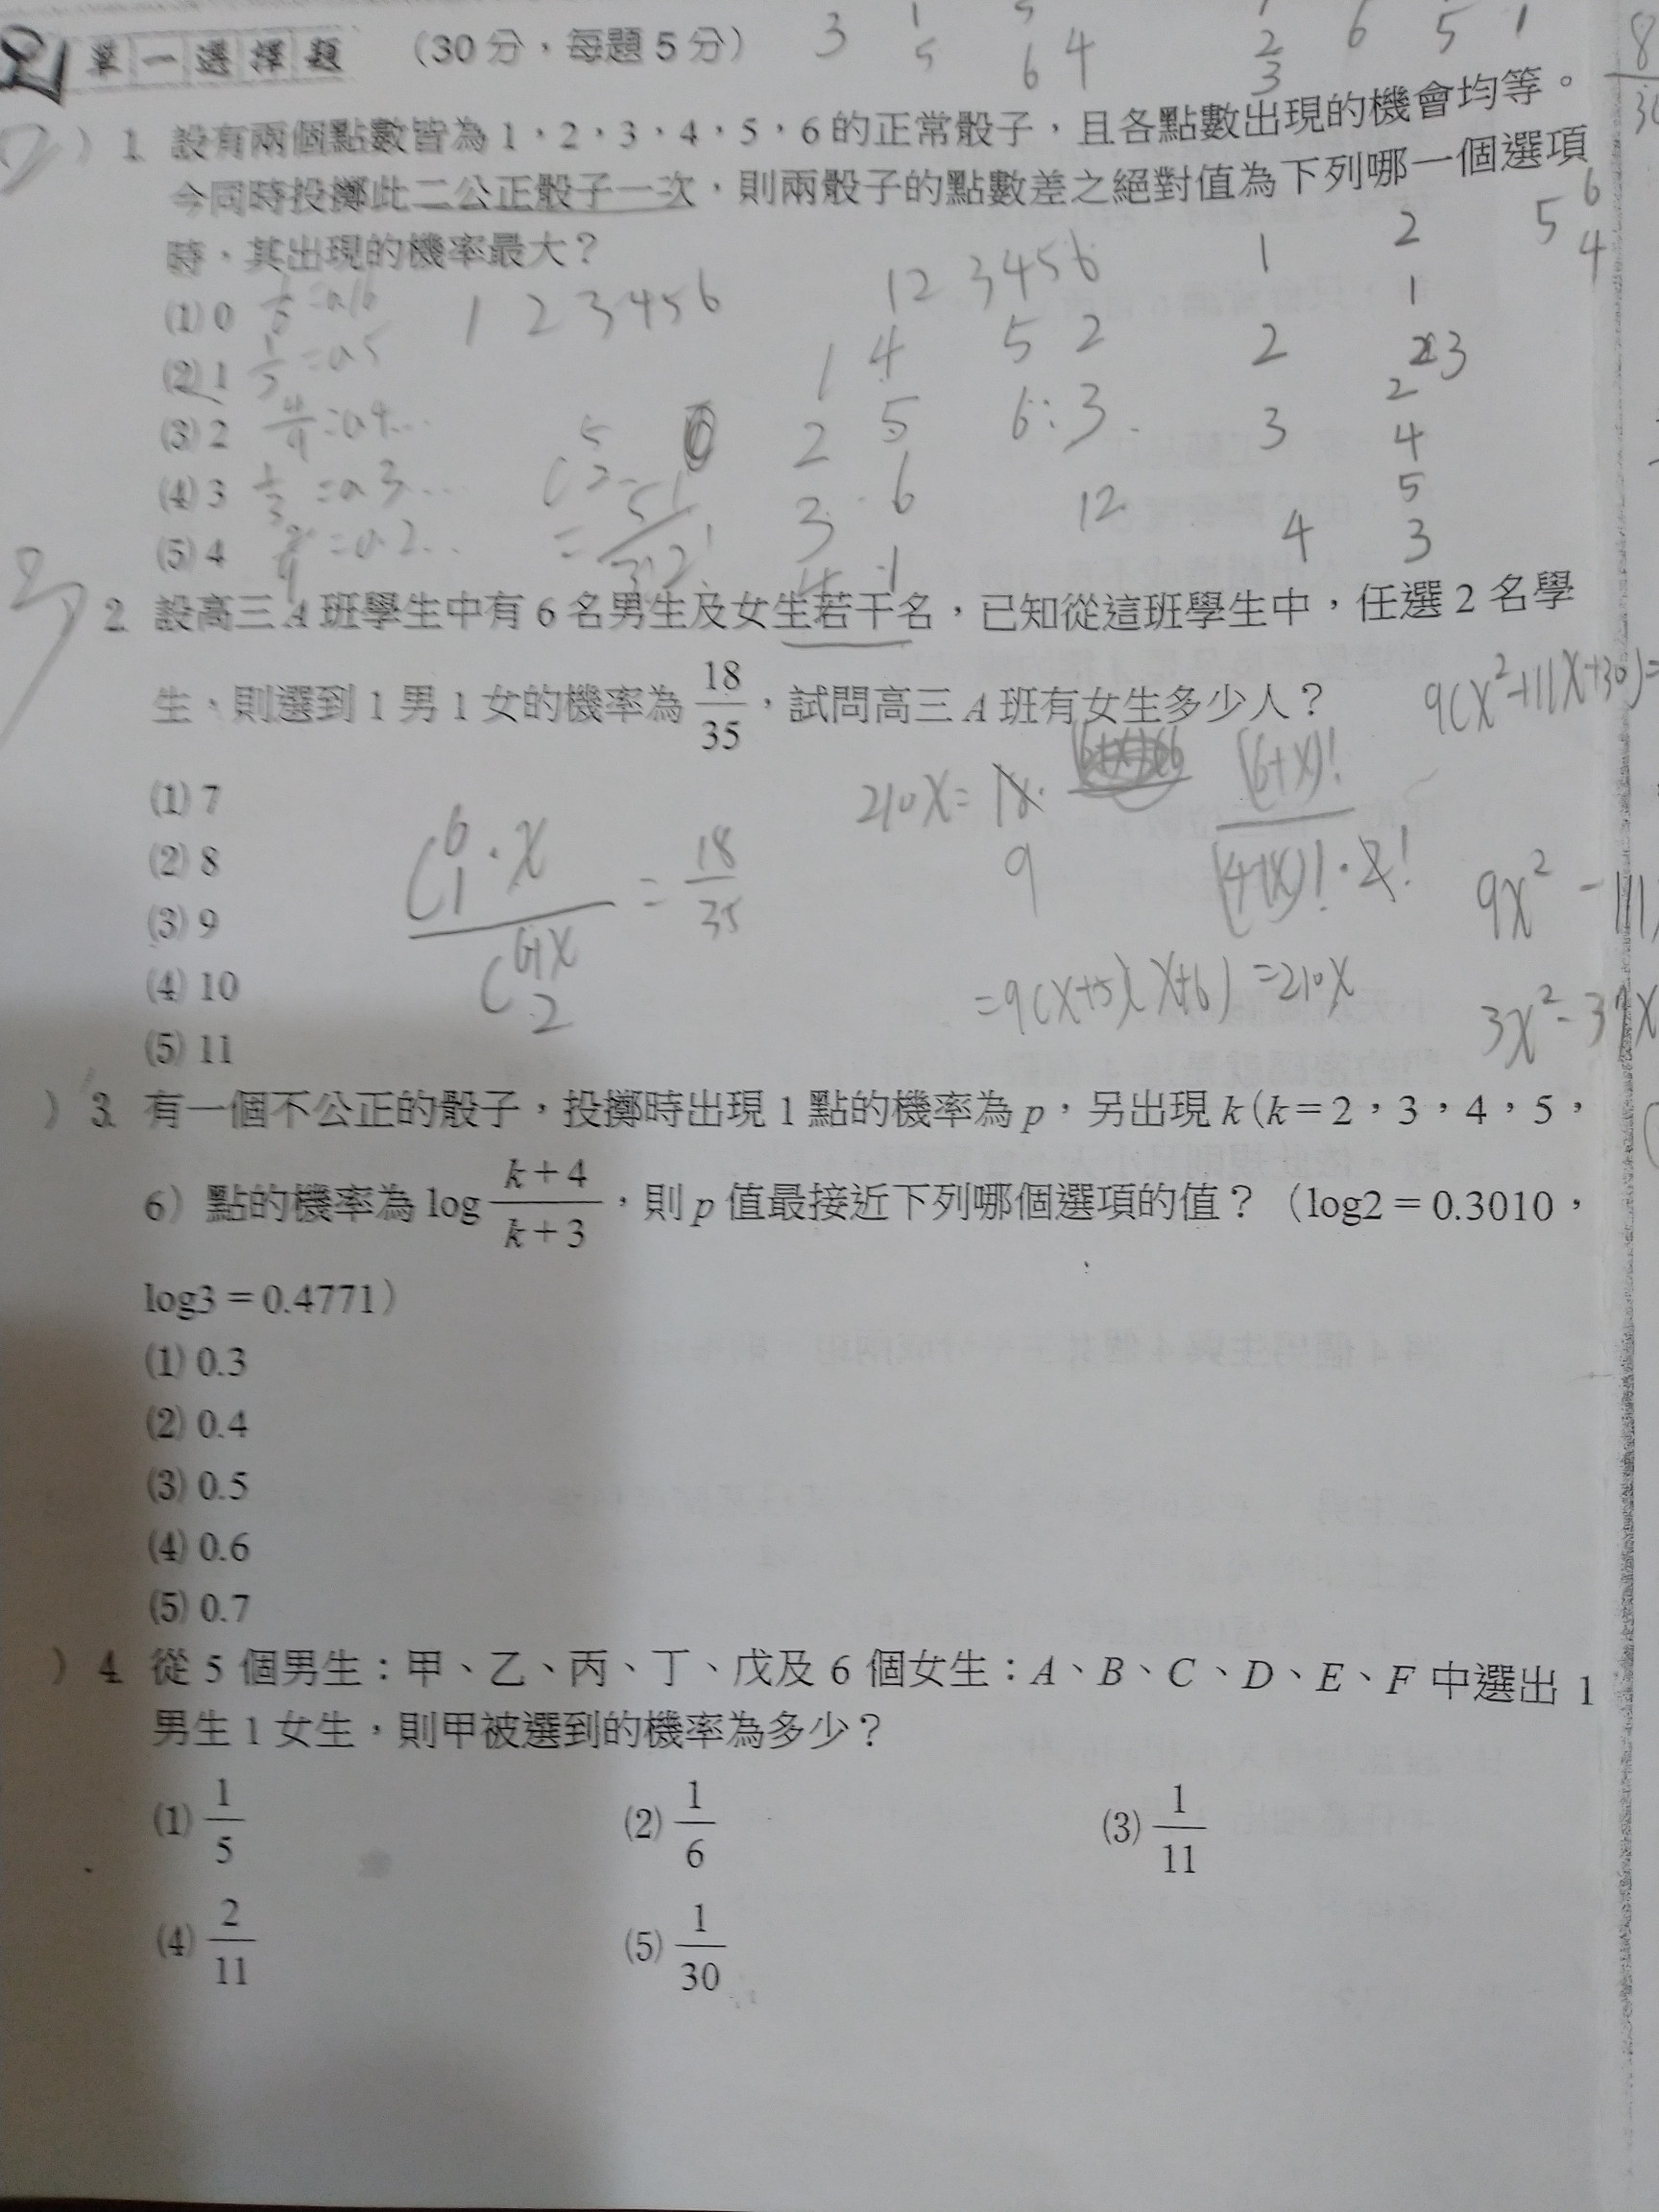 單一選擇題 (30分,每題5分)
) 1. 設有兩個點數皆為1,2,3,4,5,6的正常骰子,且各點數出現的機會均等。
今同時投擲此二公正骰子一次,則兩骰子的點數差之絕對值為下列哪一個選項
時,其出現的機率最大?
(1) 0
(2) 1
(3) 2
(4) 3
(5) 4
1 2 3 4 5 6
1 2 3 4 5 6
2. 設高三A班學生中有6名男生及女生若干名,已知從這班學生中,任選2名學
生,則選到1男1女的機率為18/35,試問高三A班有女生多少人?
9(x²+11x+30)=
(1) 7
(2) 8
(3) 9
(4) 10
(5) 11
C⁶₁·x / C⁶⁺ˣ₂ = 18/35
210x = 18· (6+x)! / (4+x)!·2!
=9(x+5)(x+6)=210x
9x² -111
3x²-37x
) 3. 有一個不公正的骰子,投擲時出現1點的機率為p,另出現k(k=2,3,4,5,
6)點的機率為log (k+4)/(k+3),則p值最接近下列哪個選項的值?(log2=0.3010,
log3=0.4771)
(1) 0.3
(2) 0.4
(3) 0.5
(4) 0.6
(5) 0.7
) 4. 從5個男生:甲、乙、丙、丁、戊及6個女生:A、B、C、D、E、F中選出1
男生1女生,則甲被選到的機率為多少?
(1) 1/5 (2) 1/6 (3) 1/11
(4) 2/11 (5) 1/30